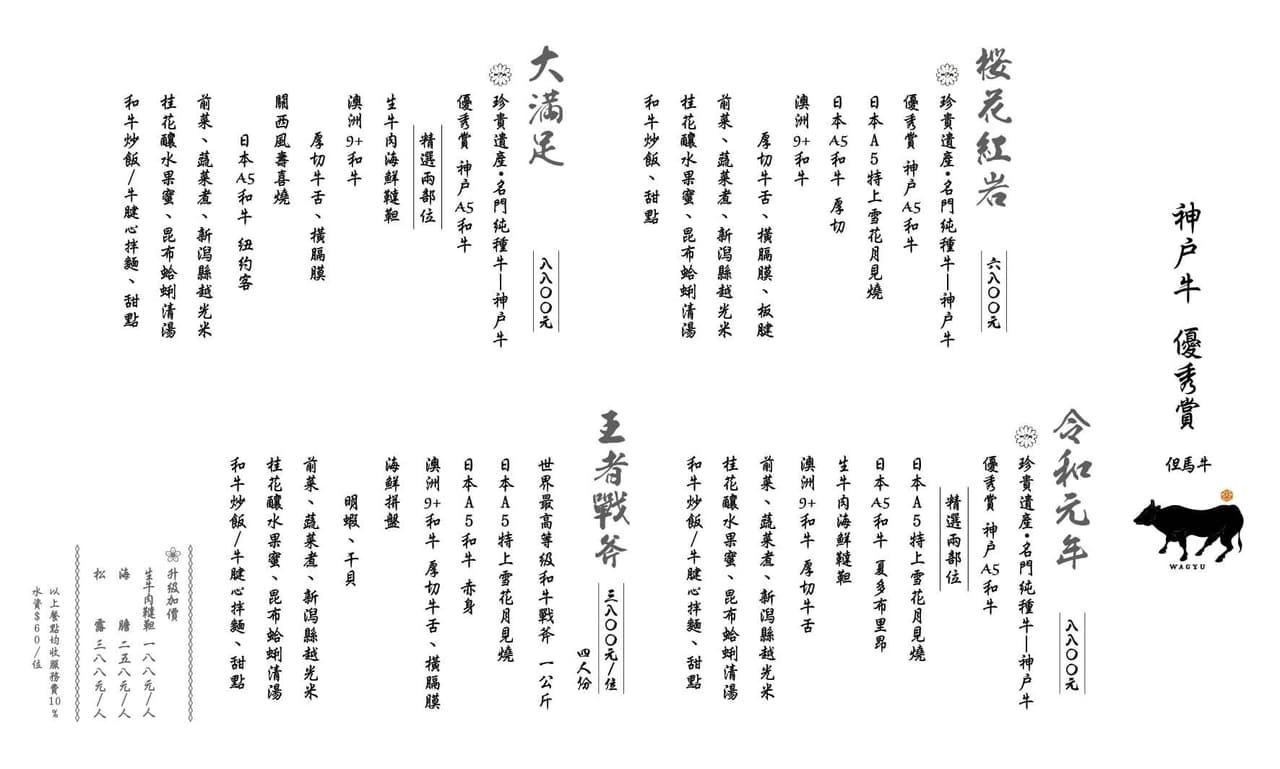 神戶牛 優秀賞
但馬牛
WAGYU
櫻花紅岩
六八〇〇元
珍貴遺産•名門純種牛—神戶牛
優秀賞 神戶A5和牛
日本A5特上雪花月見燒
日本A5和牛 厚切
澳洲9+和牛
厚切牛舌、橫膈膜、板腱
前菜、蔬菜煮、新潟縣越光米
桂花釀水果蜜、昆布蛤蜊清湯
和牛炒飯、甜點
大滿足
八八〇〇元
珍貴遺産•名門純種牛—神戶牛
優秀賞 神戶A5和牛
精選兩部位
生牛肉海鮮韃靼
澳洲9+和牛
厚切牛舌、橫膈膜
關西風壽喜燒
日本A5和牛 紐約客
前菜、蔬菜煮、新潟縣越光米
桂花釀水果蜜、昆布蛤蜊清湯
和牛炒飯/牛腱心拌麵、甜點
令和元年
八八〇〇元
珍貴遺産•名門純種牛—神戶牛
優秀賞 神戶A5和牛
精選兩部位
日本A5特上雪花月見燒
日本A5和牛 夏多布里昂
生牛肉海鮮韃靼
澳洲9+和牛 厚切牛舌
前菜、蔬菜煮、新潟縣越光米
桂花釀水果蜜、昆布蛤蜊清湯
和牛炒飯/牛腱心拌麵、甜點
王者戰斧
三八〇〇元/位
四人份
世界最高等級和牛戰斧 一公斤
日本A5特上雪花月見燒
日本A5和牛 赤身
澳洲9+和牛 厚切牛舌、橫膈膜
海鮮拼盤
明蝦、干貝
前菜、蔬菜煮、新潟縣越光米
桂花釀水果蜜、昆布蛤蜊清湯
和牛炒飯/牛腱心拌麵、甜點
升級加價
生牛肉韃靼 一八八元/人
海膽 二五八元/人
松露 三八八元/人
以上餐點均收服務費10%
水資$60/位